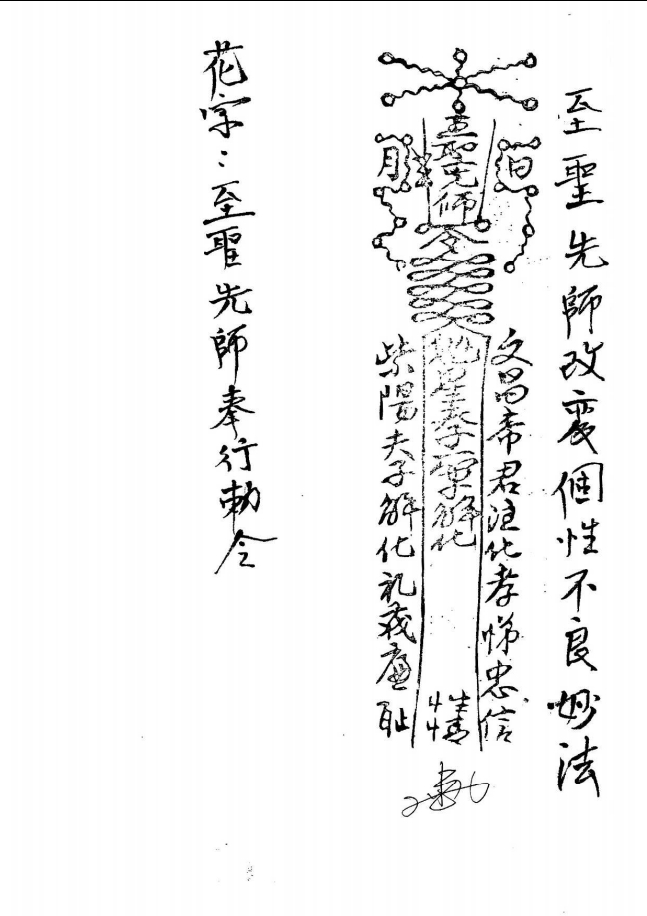 至聖先師改變個性不良妙法
日
文昌帝君注化孝悌忠信
至聖先師
令
解化
情
月
紫陽夫子解化礼義廉耻
花字:至聖先師奉行勅令